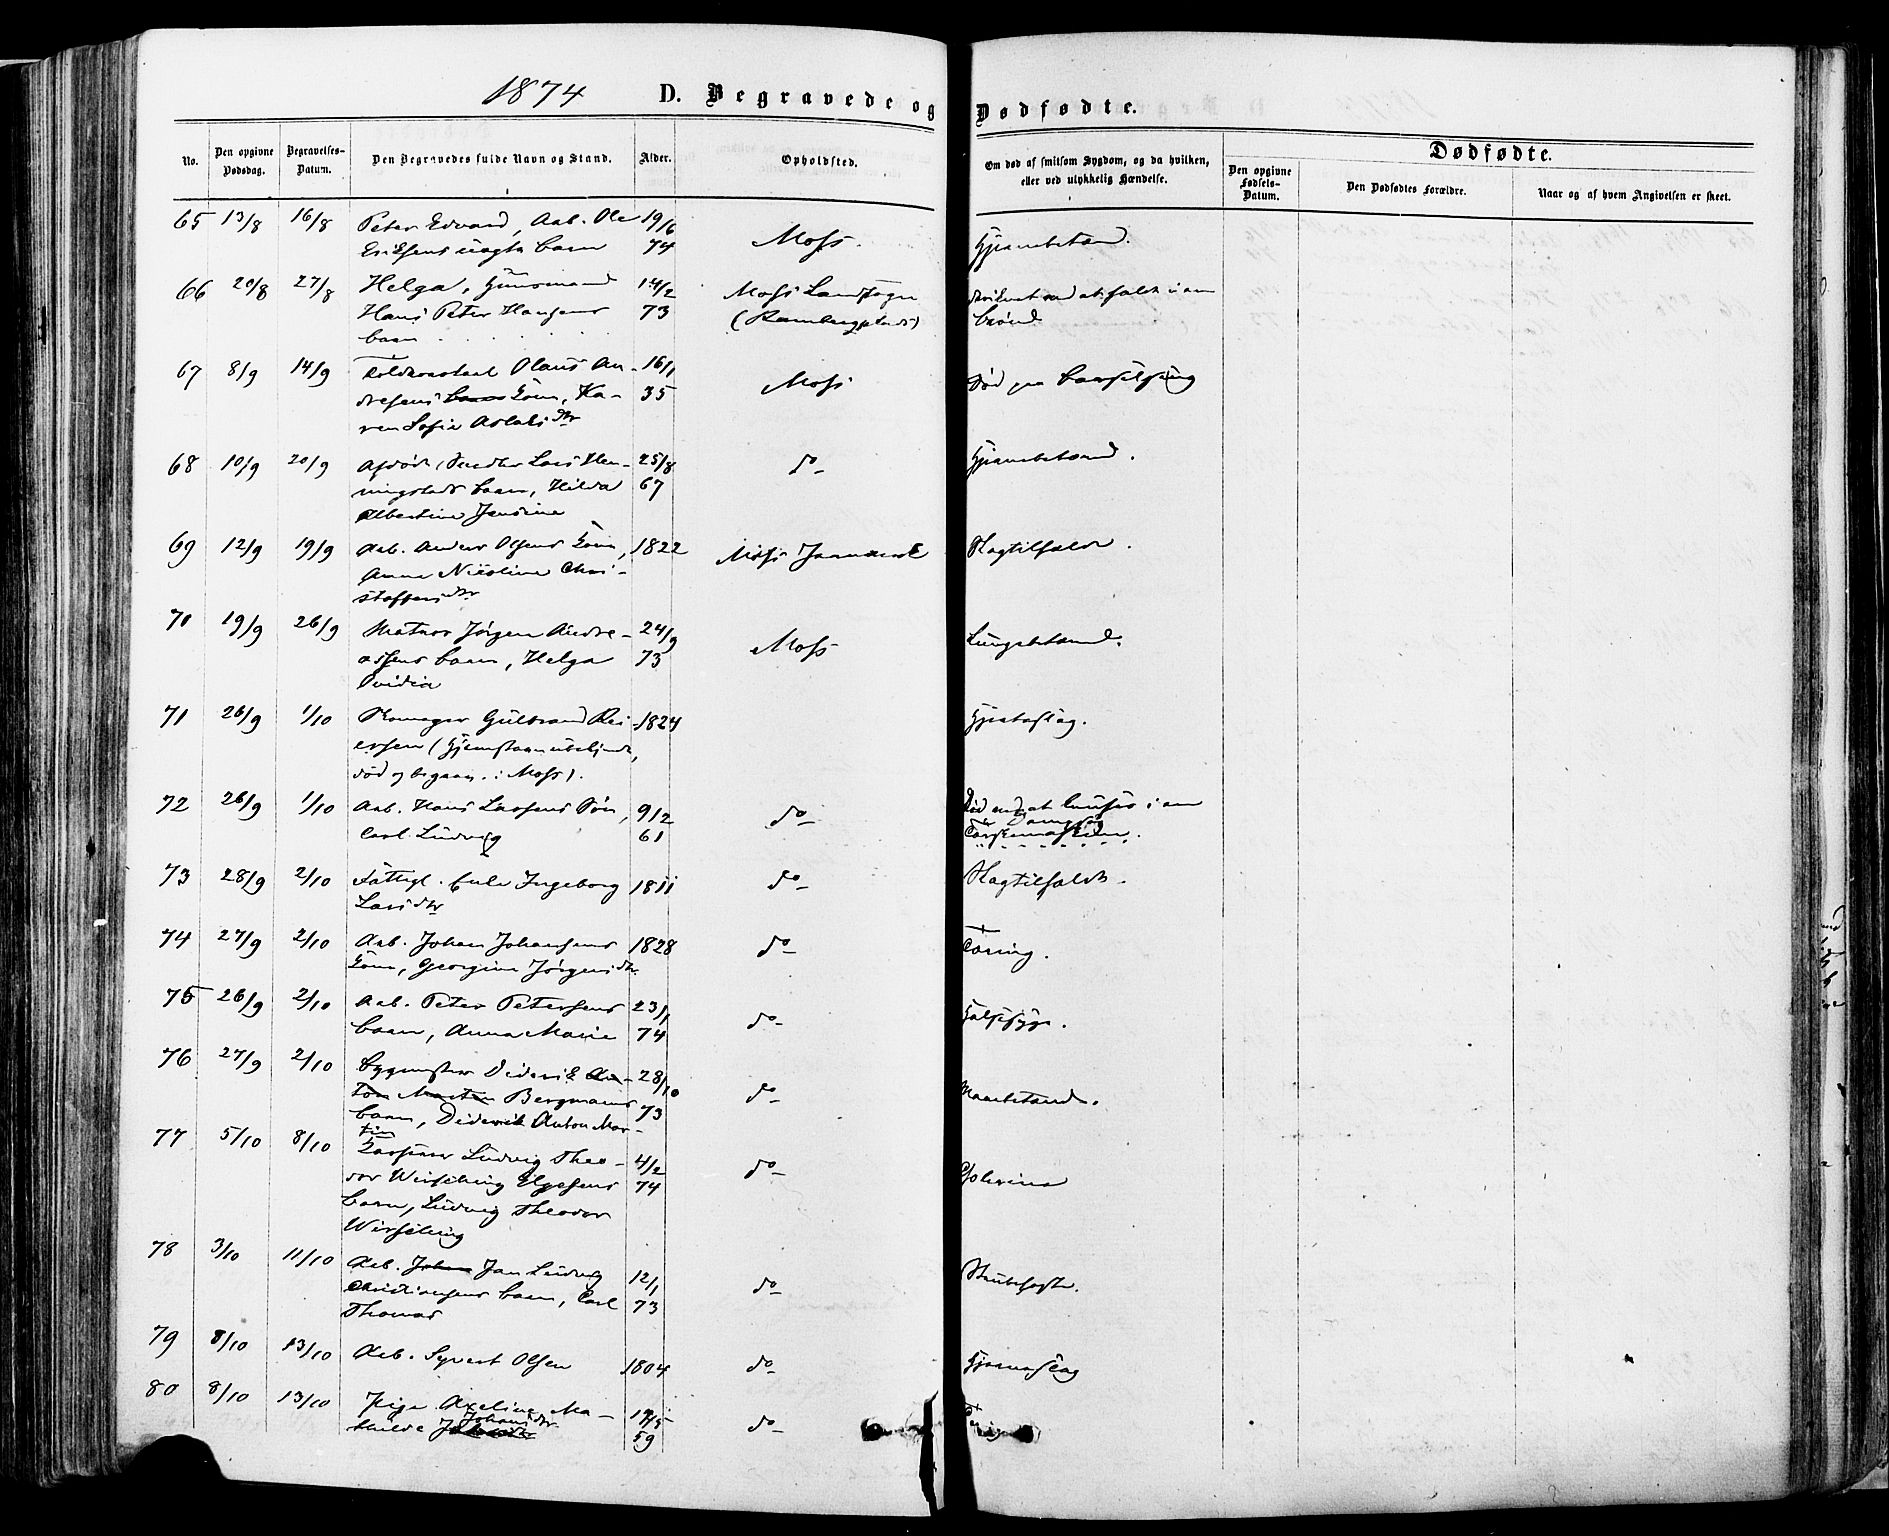 1874 D. Begravede og Dødfødte.
No.
Den opgivne Dødsdag.
Begravelses-Datum.
Den Begravedes fulde Navn og Stand.
Alder.
Opholdsted.
Om død af smitsom Sygdom, og da hvilken,
eller ved ulykkelig Hændelse.
Dødfødte.
Den opgivne Fødsels-Datum.
Den Dødfødtes Forældre.
Naar og af hvem Angivelsen er skeet.
65 13/8 16/8 Peter Edvard, Arb. Ole 19/6 Moss. Hjernebetænd.
Eriksens uægte barn 74
66 20/8 27/8 Helga, Huusmand 14/2 Moss Landsogn ved at falde i en
Hans Peter Hansens 73 brønd
barn
67 8/9 14/9 Olaus An- 16/1 Moss Død paa barselseng
dresens barn Kone, Ka- 35
ren Sofie Aslaksdtr
68 10/9 20/9 Afdøde Lars Hen- 25/8 do Hjernebetænd.
ningstads barn, Hilda 67
Albertine Jensine
69 12/9 19/9 Arb. Anders Olsens Kone, 1822 Moss Jernværk Slagtilfælde.
Anna Nicoline Chri-
stoffersdtr
70 19/9 26/9 Matros Jørgen Andre- 24/9 Moss Lungebetænd.
assens barn, Helga 73
71 26/9 1/10 Gulbrand Rei- 1824 Hjerteslag.
ersen (
død og begrav. i Moss).
72 26/9 1/10 Arb. Hans Larsens Søn, 9/2 do Død ved at i en
Carl Ludvig 61 Dampsag
Tærskemaskine.
73 28/9 2/10 Fattigl. Enke Ingeborg 1811 do Slagtilfælde.
Larsdtr
74 27/9 2/10 Arb. Johan Johansens 1828 do Tæring.
Kone, Georgine Jørgensdtr.
75 26/9 2/10 Arb. Peter Petersens 23/1 do Halssyge.
barn, Anna Marie 74
76 27/9 2/10 Bygmester Diderik An- 28/10 do
ton Martin Bergmanns 73
barn, Diderik Anton Mar-
tin
77 5/10 8/10 Ludvig Theo- 4/2 do Cholerine
dor Wirsching Elgesens 74
barn, Ludvig Theodor
Wirsching
78 3/10 11/10 Arb. Johan Jan Ludvig 12/1 do Strubehoste.
Christiansens barn, Carl 73
Thomas
79 8/10 13/10 Arb. Syvert Olsen 1804 do Hjerneslag
80 8/10 13/10 Pige Axeline Ma- do
thilde Johansdtr 59